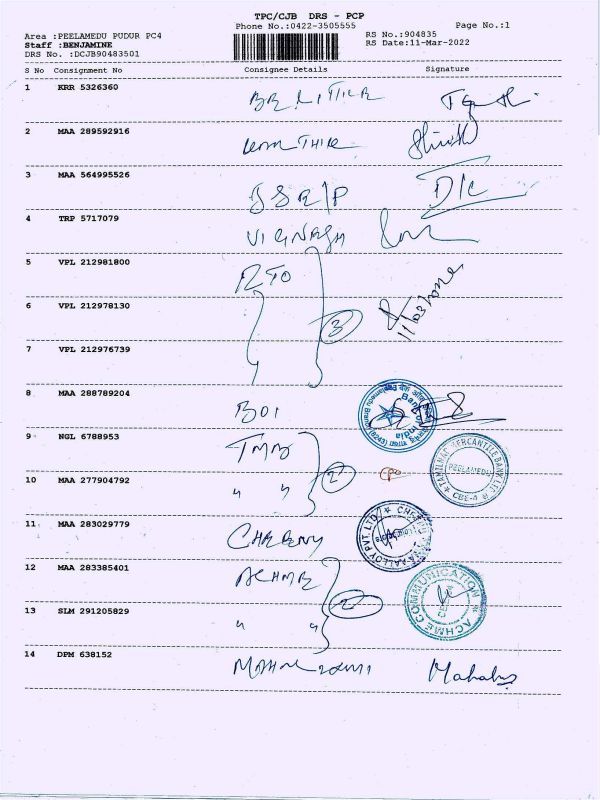 TPC/CJB DRS - PCP
Phone No.:0422-3505555 Page No.:1
Area :PEELAMEDU PUDUR PC4 RS No.:904835
Staff :BENJAMINE RS Date:11-Mar-2022
DRS No. :DCJB90483501
S No Consignment No Consignee Details Signature
1 KRR 5326360
2 MAA 289592916
3 MAA 564995526
4 TRP 5717079 VIGNESH
5 VPL 212981800 RTO
6 VPL 212978130 3
7 VPL 212976739
8 MAA 288789204 BOI Bank of India
9 NGL 6788953 TMB TAMILNAD MERCANTILE BANK LTD PEELAMEDU CBE-4
10 MAA 277904792 " " 2
11 MAA 283029779
12 MAA 283385401 ACHME ACHME COMMUNICATION
13 SLM 291205829 " " 2
14 DPM 638152